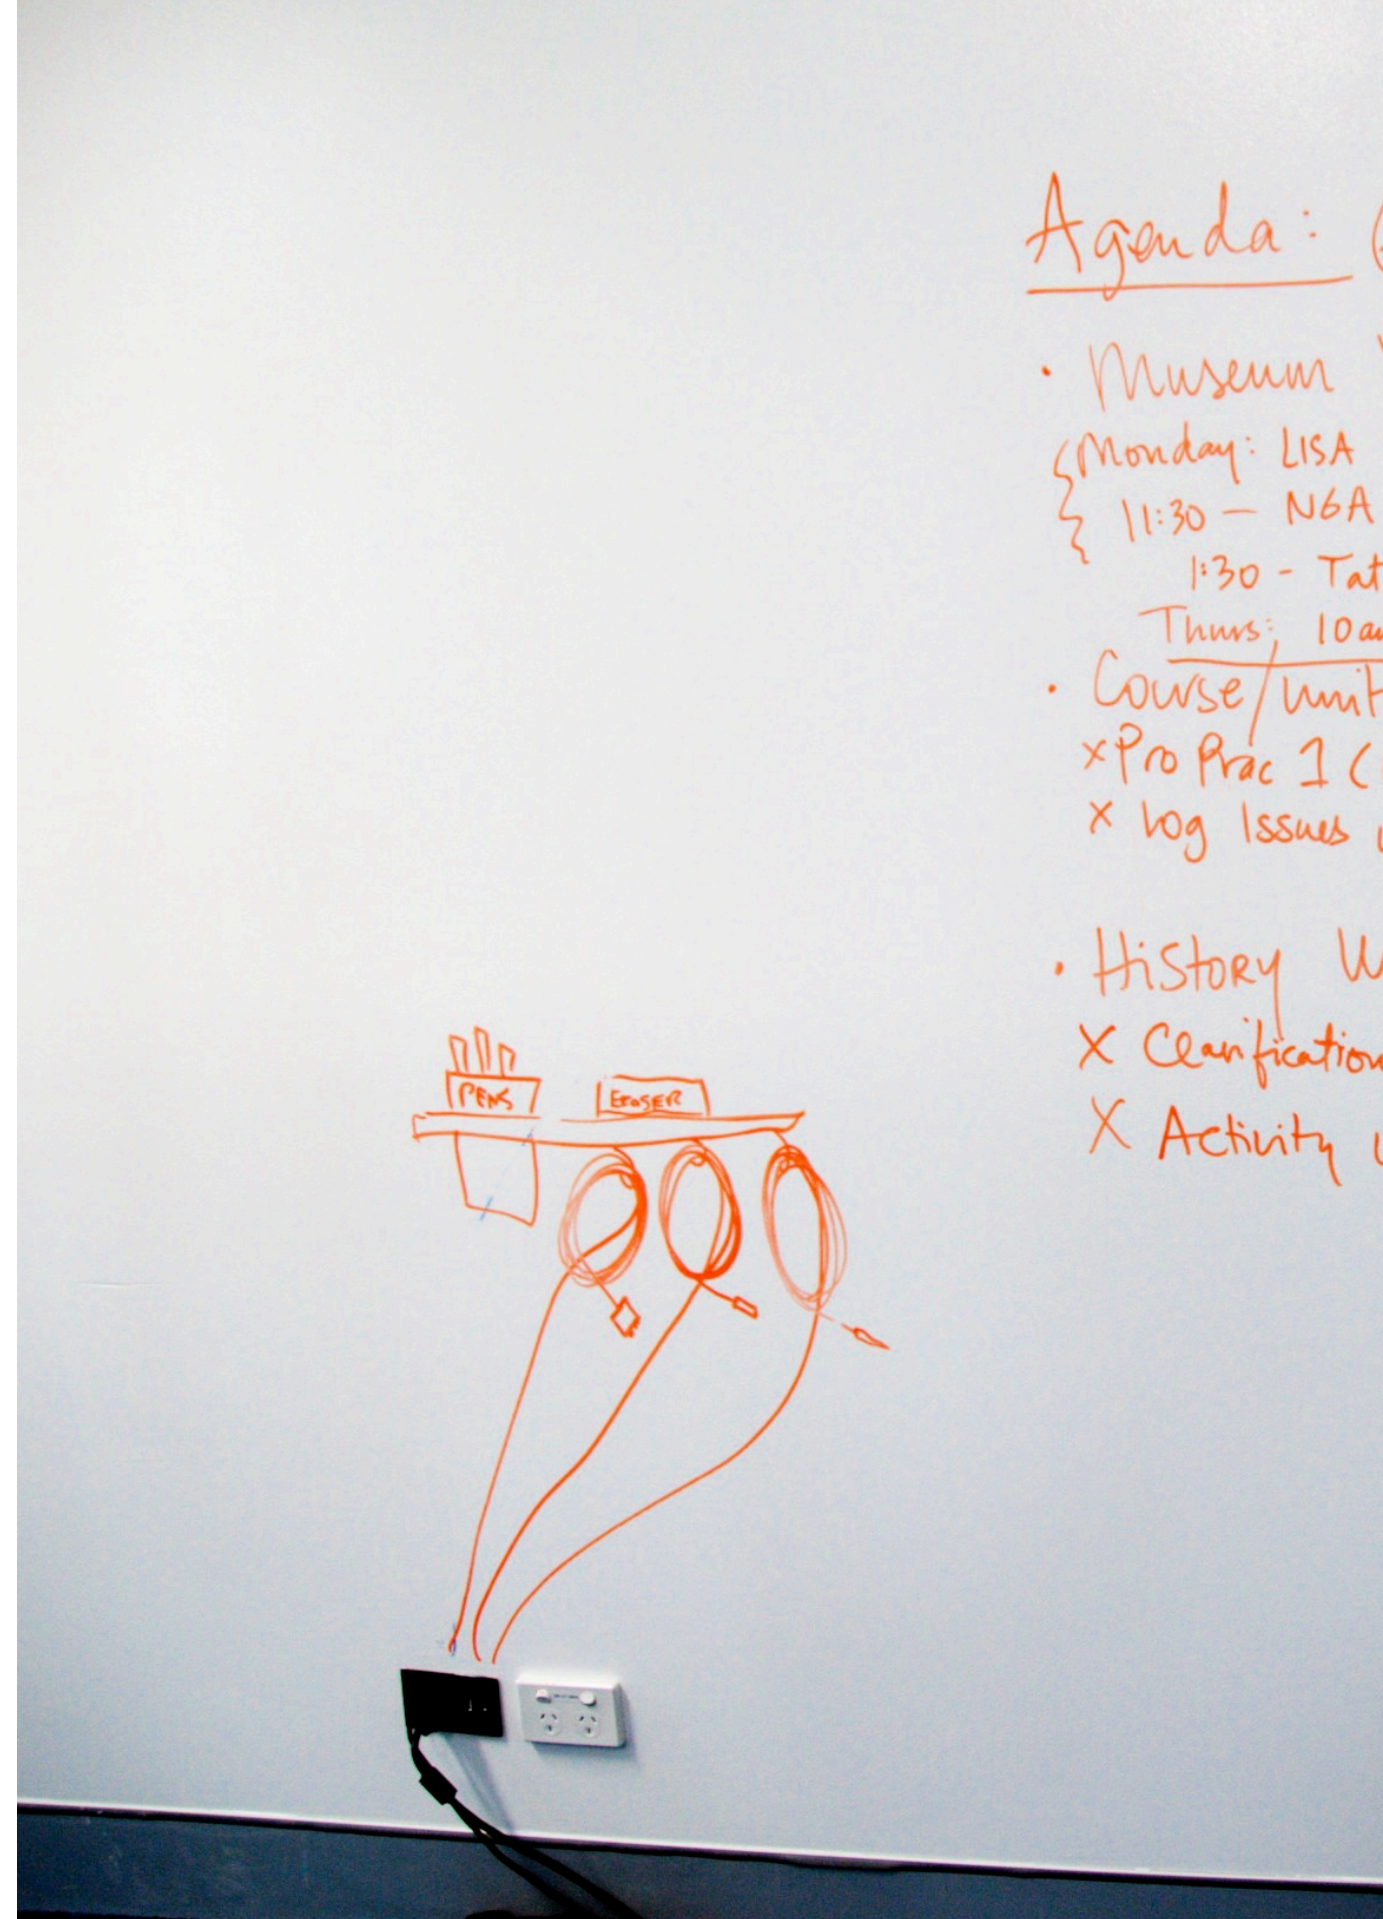 Agenda: (
• Museum
Monday: LISA
11:30 — NGA
1:30 - Tat
Thurs: 10am
• Course/unit
x Pro Prac 1 (
x Log Issues
• History W
X Clarification
X Activity
PENS
ERASER